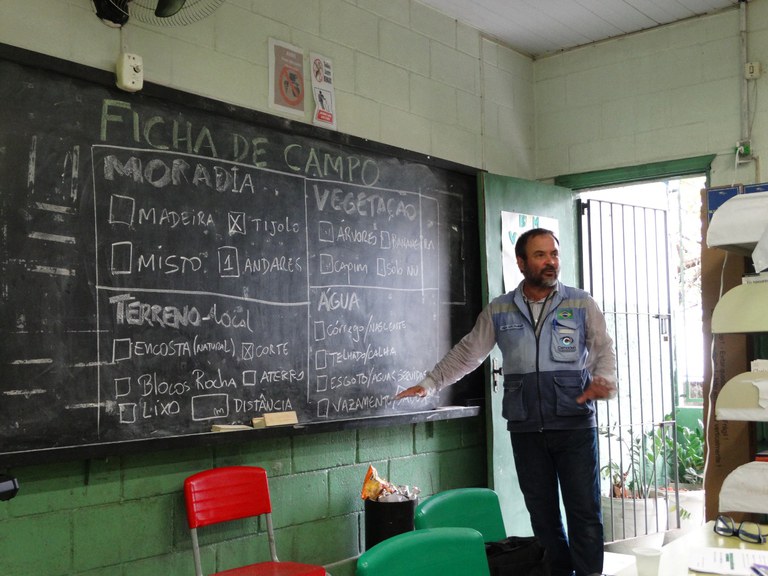 FICHA DE CAMPO
MORADIA
MADEIRA X TIJOLO
MISTO 1 ANDARES
VEGETAÇÃO
ÁRVORES BANANEIRA
CAPIM SOLO NU
TERRENO-local
ENCOSTA (NATURAL) X CORTE
BLOCOS ROCHA ATERRO
LIXO m DISTÂNCIA
ÁGUA
CÓRREGO/NASCENTE
TELHADO/CALHA
ESGOTO/ÁGUAS SERVIDAS
VAZAMENTO